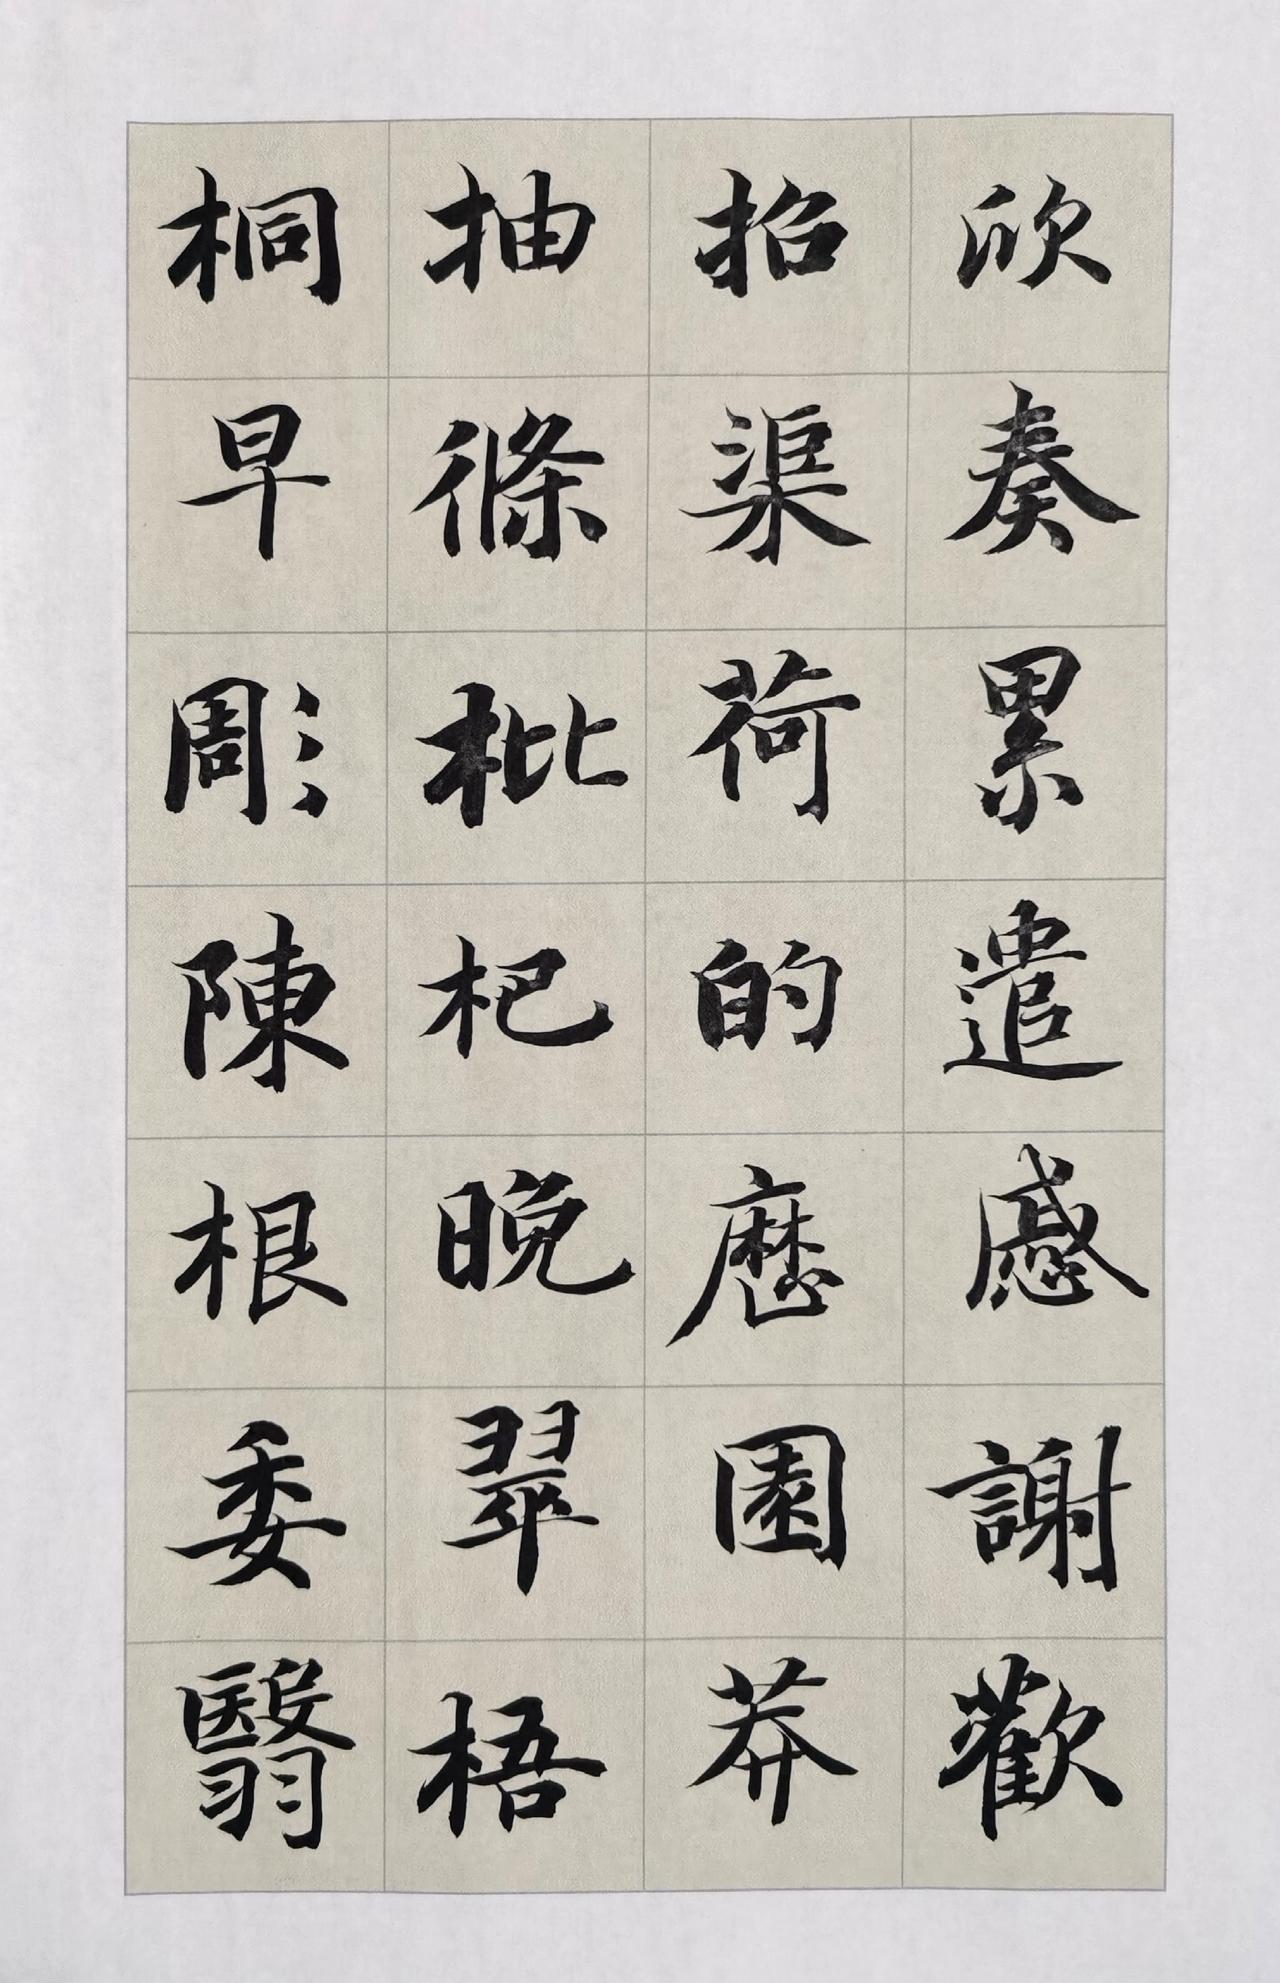 欣奏累遣慼謝歡
招渠荷的歷園莽
抽條枇杷晚翠梧
桐早彫陳根委翳